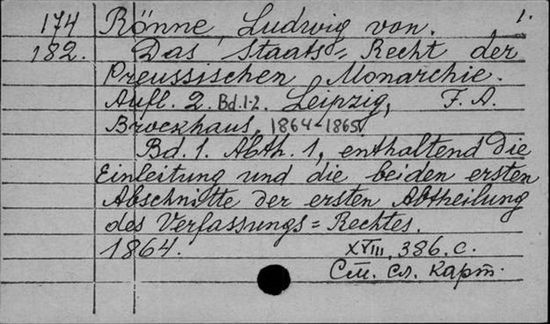 1.
174 Rönne, Ludwig von.
182. Das Staats=Recht der
Preussischen Monarchie.
Aufl. 2. Bd.1-2. Leipzig, F. A.
Brockhaus, 1864-1865.
Bd. 1. Abth. 1, enthaltend die
Einleitung und die beiden ersten
Abschnitte der ersten Abtheilung
des Verfassungs=Rechtes.
1864. XVIII, 386, с.
См. сл. карт.